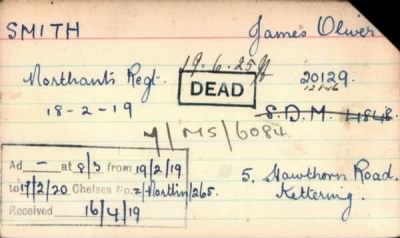 SMITH James Oliver
19.6.25
Northants Regt. DEAD 20129.
12846
18-2-19 S.D.M. 11848
M/MS/6084
Ad — at 8/3 from 19/2/19
to 17/2/20 Chelsea No. 2/Northn/265.
Received 16/4/19
5. Hawthorn Road.
Kettering.